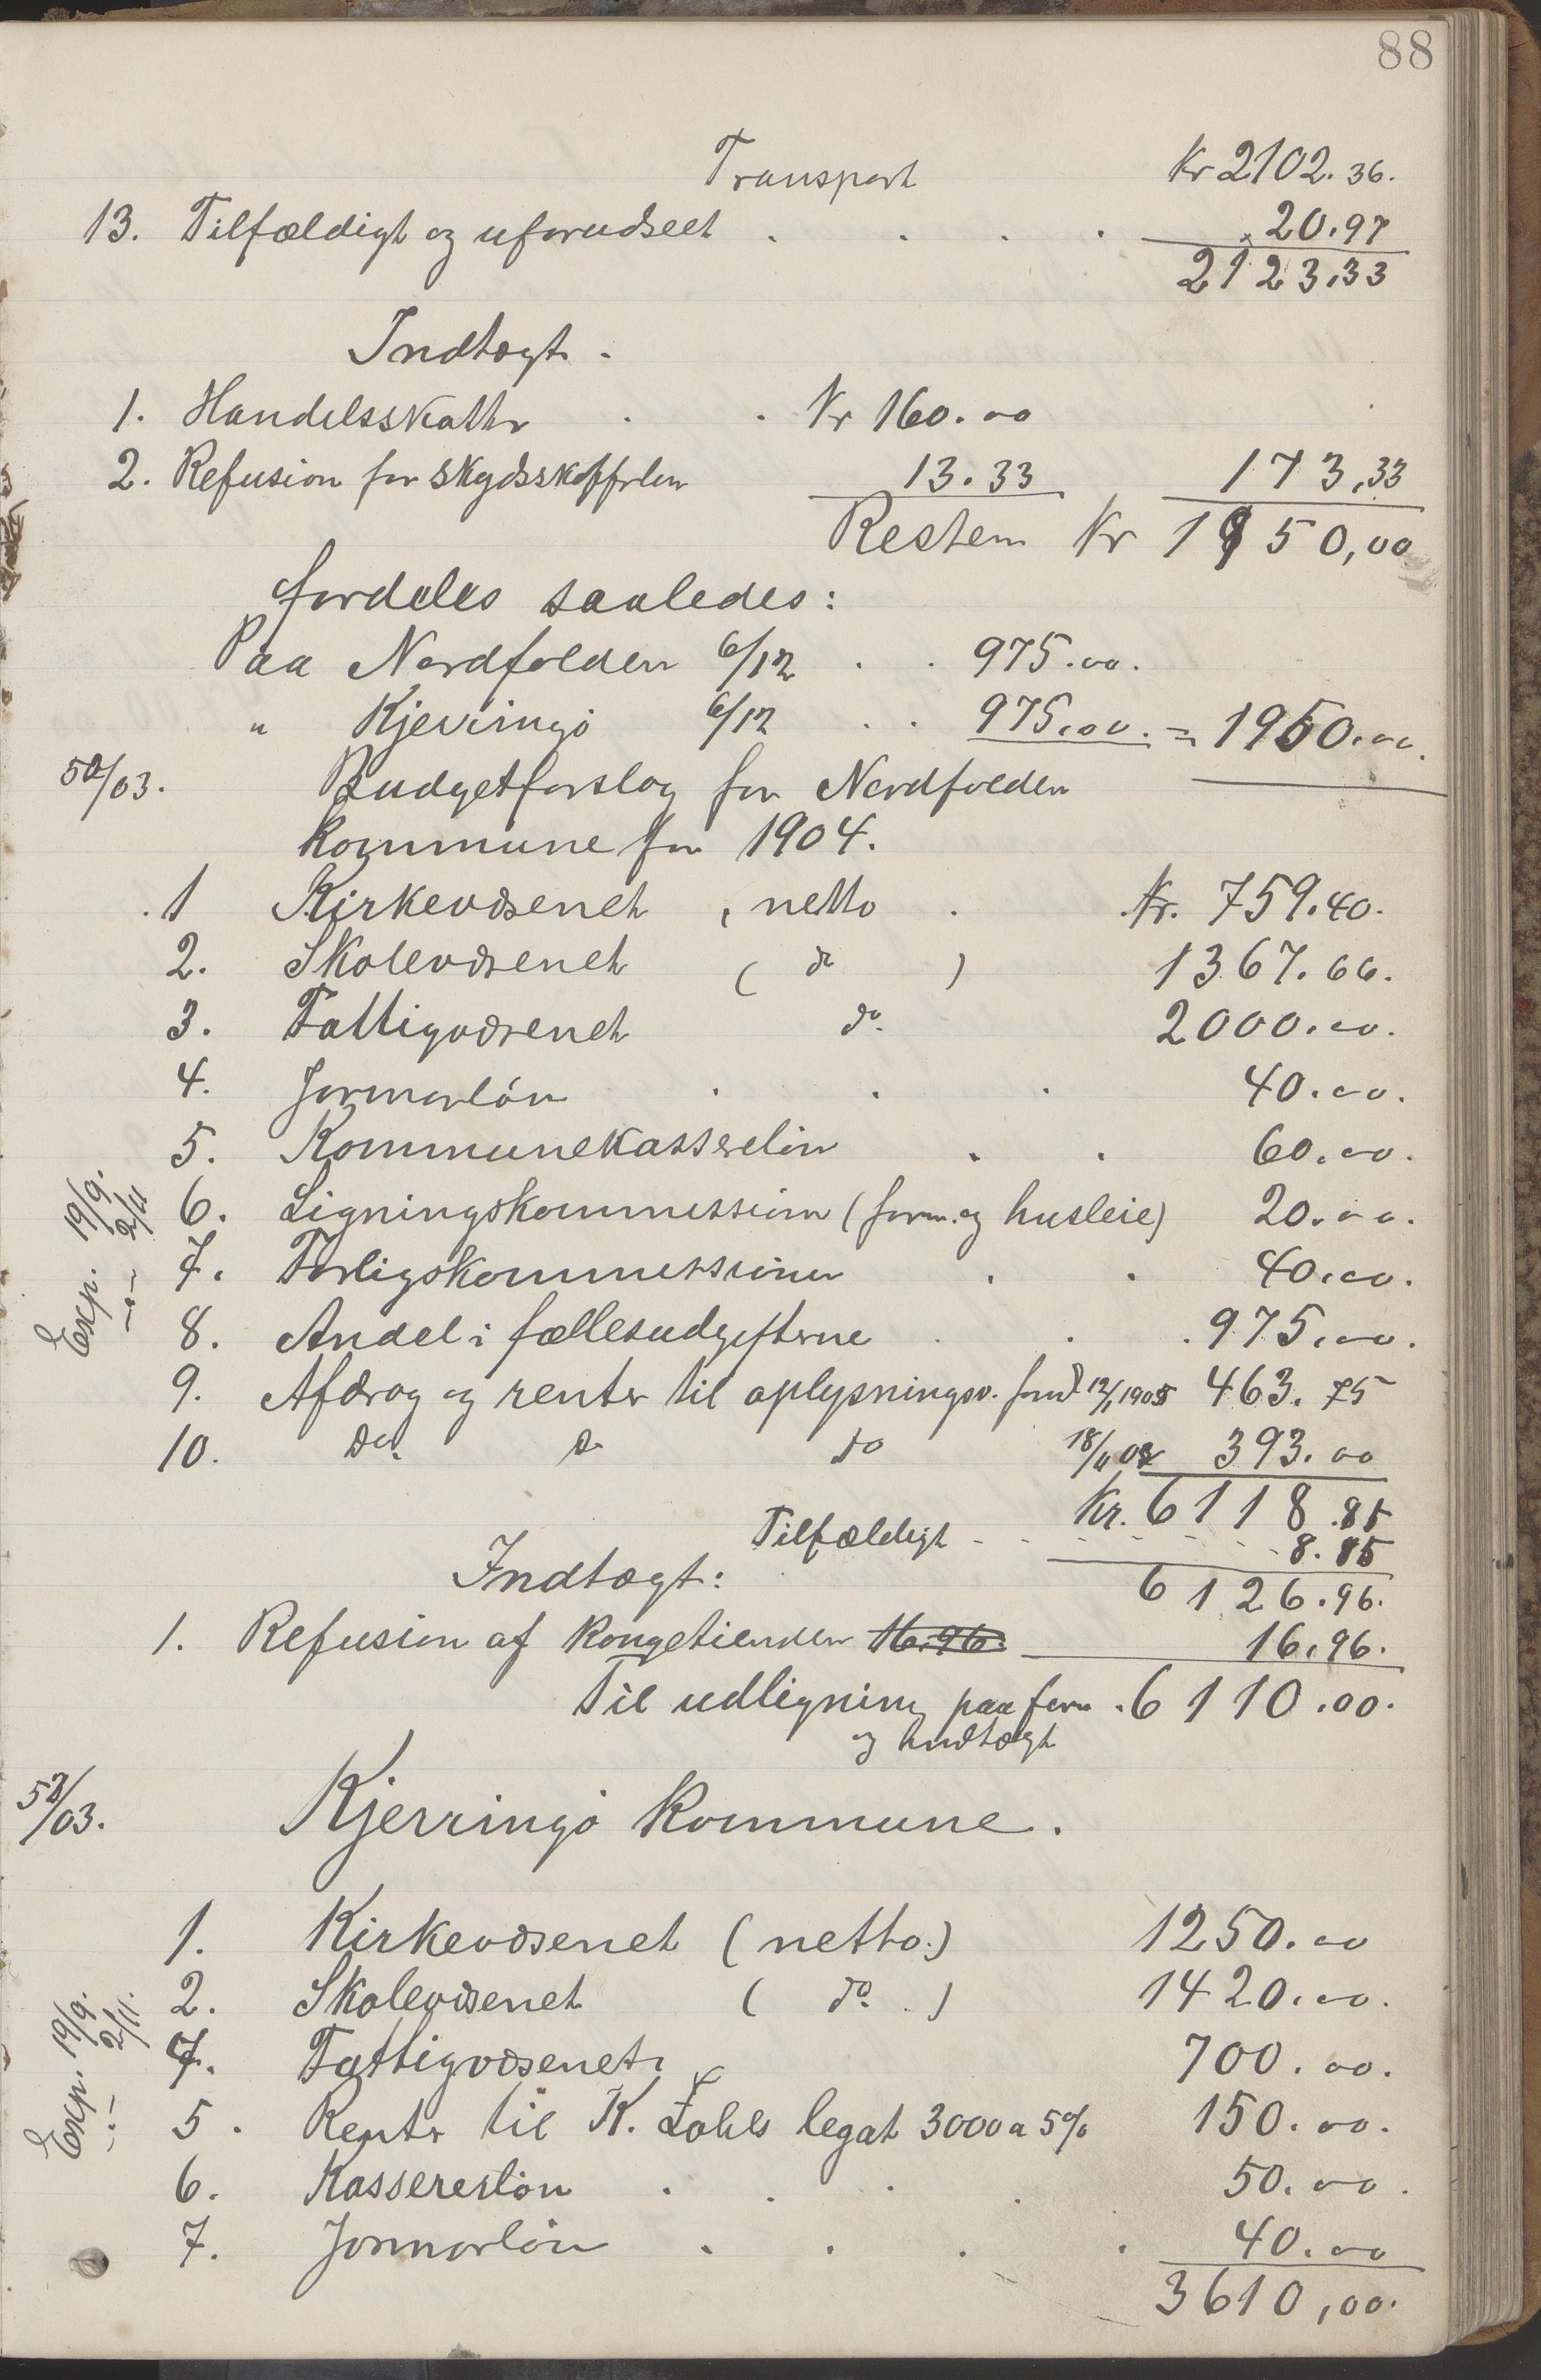 88
Transport Kr 2102.36.
13. Tilfældigt og uforudseet . . . . 20.97
2123,33
Indtægt.
1. Handelsskatter . . Kr 160.00
2. Refusion for skydsskafferløn 13.33 173,33
Resten Kr 1950,00
fordeles saaledes:
Paa Nordfolden 6/12 . . 975.00.
" Kjerringö 6/12 . . 975.00. = 1950.00.
52/03. Budgetforslag for Nordfolden
kommune for 1904.
1 Kirkevæsenet , netto . Kr. 759.40.
2. Skolevæsenet ( do ) 1367.66.
3. Fattigvæsenet do. 2000.00.
4. Jormorlön . . . 40.00.
5. Kommunekassereløn . . 60.00.
6. Ligningskommission (form. og husleie) 20.00.
7. Forligskommissionen . . 40.00.
8. Andel i fællesudgifterne . . . 975.00.
Exp. 19/9.
-"- 2/11
9. Afdrag og renter til oplysningsv. fond 12/1 1905 463.75
10. Do. do do 18/11 02 393.00
Kr. 6118.85
Tilfældigt - - - - - - 8.15
Indtægt: 6126.96.
1. Refusion af Kongetienden 16.96. 16.96.
Til udligning paa form . 6110.00.
og Indtægt
53/03. Kjerringö Kommune.
1. Kirkevæsenet (netto.) 1250.00
2. Skolevæsenet ( do. ) 1420.00.
4. Fattigvæsenet. 700.00.
5. Renter til K. Zahls legat 3000 a 5% 150.00.
Exp. 19/9.
-"- 2/11.
6. Kasserersløn . . . . 50.00.
7. Jormorlön . . . . 40.00
3610,00.